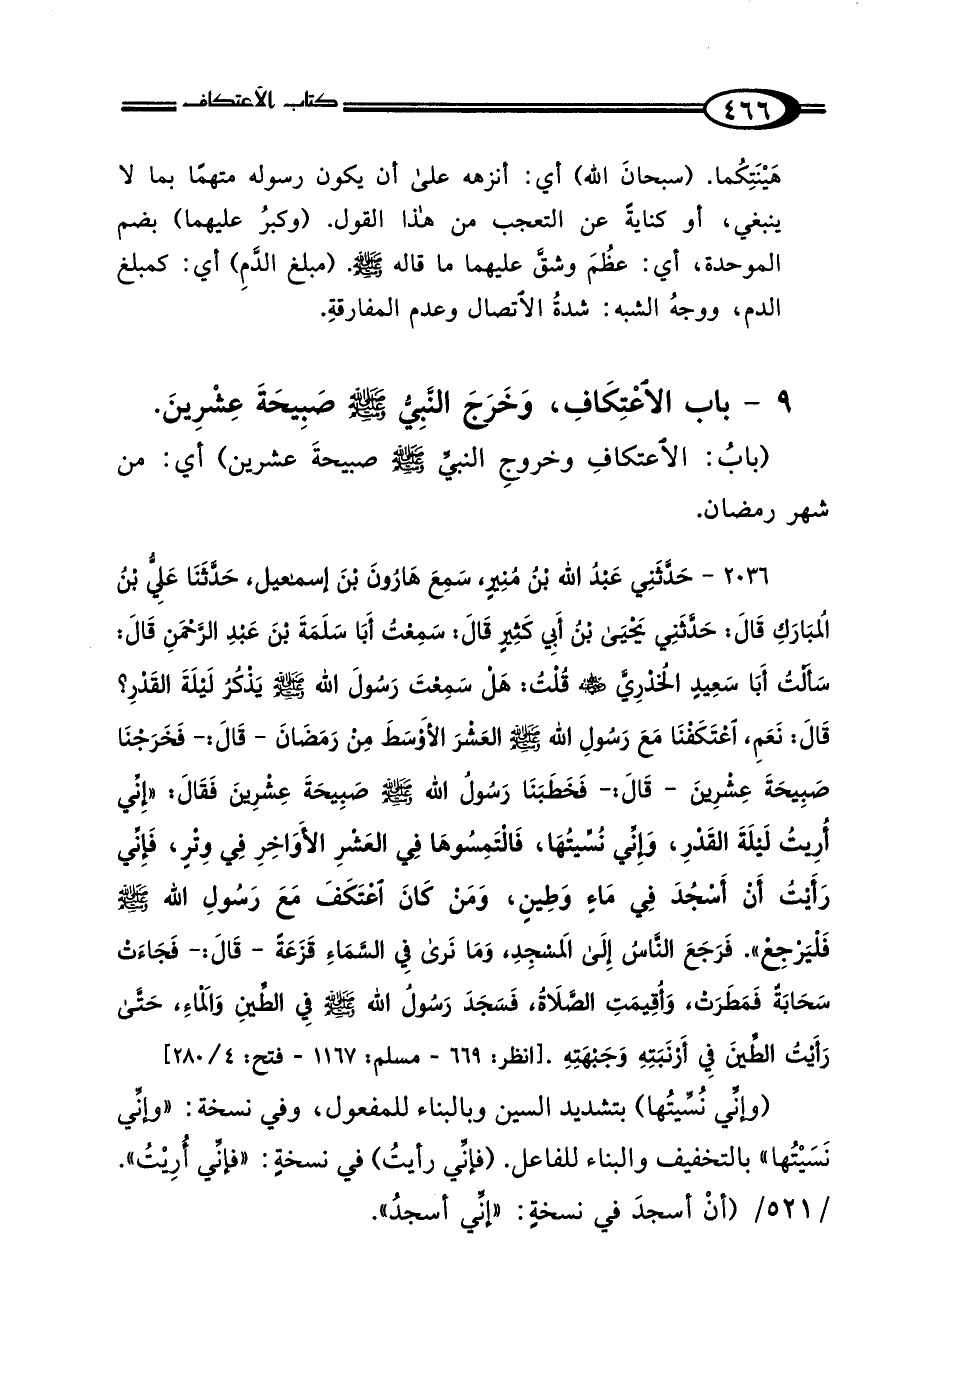 ٤٦٦ كتاب الاعتكاف
هَيْنَتِكُما. (سبحانَ الله) أي: أنزهه علىٰ أن يكون رسوله متهمًا بما لا
ينبغي، أو كنايةً عن التعجب من هذا القول. (وكبرُ عليهما) بضم
الموحدة، أي: عظُمَ وشقَّ عليهما ما قاله ﷺ. (مبلغ الدَّمِ) أي: كمبلغ
الدم، ووجهُ الشبه: شدةُ الاتصال وعدم المفارقةِ.
٩ - باب الاعْتِكَافِ، وَخَرَجَ النَّبِيُّ ﷺ صَبِيحَةَ عِشْرِينَ.
(بابُ: الاعتكافِ وخروجِ النبيِّ ﷺ صبيحةَ عشرين) أي: من
شهر رمضان.
٢٠٣٦ - حَدَّثَنِي عَبْدُ الله بْنُ مُنِيرٍ، سَمِعَ هَارُونَ بْنَ إسمٰعيل، حَدَّثَنَا عَلِيُّ بْنُ
الْمُبَارَكِ قَالَ: حَدَّثَنِي يَحْيَىٰ بْنُ أَبِي كَثِيرٍ قَالَ: سَمِعْتُ أَبَا سَلَمَةَ بْنَ عَبْدِ الرَّحْمَنِ قَالَ:
سَأَلْتُ أَبَا سَعِيدٍ الْخُدْرِيَّ ﵁ قُلْتُ: هَلْ سَمِعْتَ رَسُولَ الله ﷺ يَذْكُرُ لَيْلَةَ القَدْرِ؟
قَالَ: نَعَمِ، اعْتَكَفْنَا مَعَ رَسُولِ الله ﷺ العَشْرَ الأَوْسَطَ مِنْ رَمَضَانَ - قَالَ:- فَخَرَجْنَا
صَبِيحَةَ عِشْرِينَ - قَالَ:- فَخَطَبَنَا رَسُولُ الله ﷺ صَبِيحَةَ عِشْرِينَ فَقَالَ: «إِنِّي
أُرِيتُ لَيْلَةَ القَدْرِ، وَإِنِّي نُسِّيتُهَا، فَالْتَمِسُوهَا فِي العَشْرِ الأَوَاخِرِ فِي وِتْرٍ، فَإِنِّي
رَأَيْتُ أَنْ أَسْجُدَ فِي مَاءٍ وَطِينٍ، وَمَنْ كَانَ اعْتَكَفَ مَعَ رَسُولِ الله ﷺ
فَلْيَرْجِعْ». فَرَجَعَ النَّاسُ إِلَىٰ الْمَسْجِدِ، وَمَا نَرىٰ فِي السَّمَاءِ قَزَعَةً - قَالَ:- فَجَاءَتْ
سَحَابَةٌ فَمَطَرَتْ، وَأُقِيمَتِ الصَّلَاةُ، فَسَجَدَ رَسُولُ الله ﷺ فِي الطِّينِ وَالْمَاءِ، حَتَّىٰ
رَأَيْتُ الطِّينَ فِي أَرْنَبَتِهِ وَجَبْهَتِهِ .[انظر: ٦٦٩ - مسلم: ١١٦٧ - فتح: ٤/ ٢٨٠]
(وإنِّي نُسِّيتُها) بتشديد السين وبالبناء للمفعول، وفي نسخة: «وإنِّي
نَسَيْتُها» بالتخفيف والبناء للفاعل. (فإنِّي رأيتُ) في نسخةٍ: «فإنِّي أُرِيْتُ».
/ ٥٢١/ (أنْ أسجدَ في نسخةٍ: «إنِّي أسجدُ».